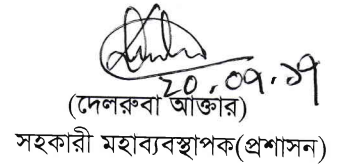 ২০.০৭.১৭
(দেলরুবা আক্তার)
সহকারী মহাব্যবস্থাপক(প্রশাসন)